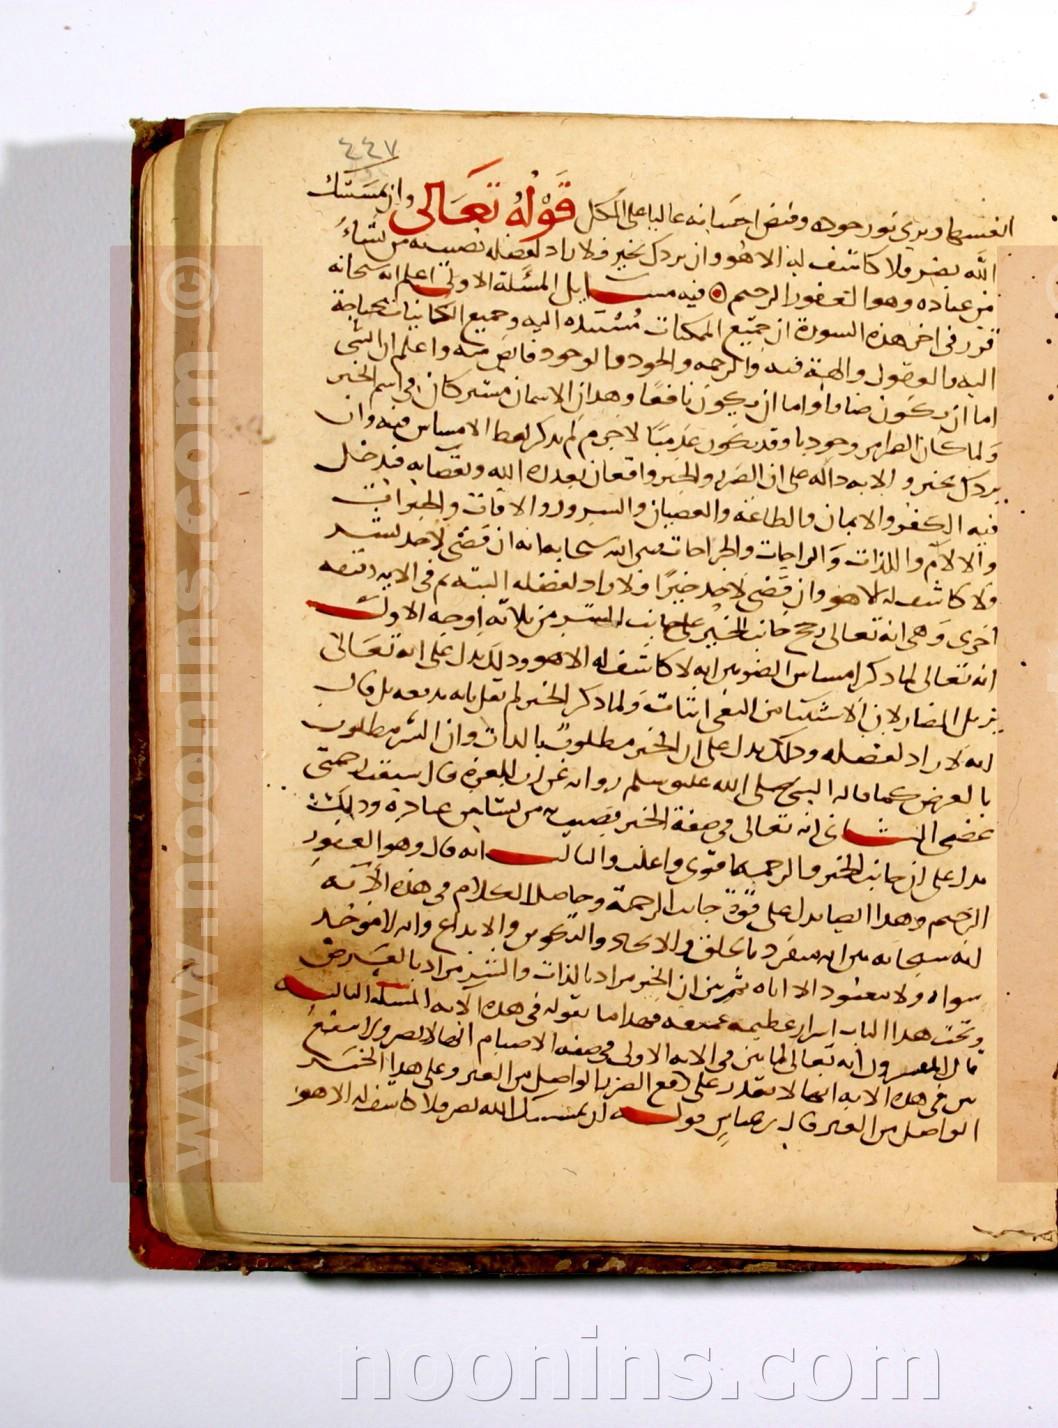 ٤٤٧
انفسها ويرى نور جوده وفيض احسانه عاليا على الكل قوله تعالى وان يمسسك
الله بضر فلا كاشف له الا هو وان يردك بخير فلا راد لفضله يصيب به من يشاء
من عباده وهو الغفور الرحيم فيه مسايل المسئلة الاولى اعلم انه سبحانه
قرر في اخر هذه السورة ان جميع الممكنات مستنده اليه وجميع الكاينات محتاجة
اليه والعقول والهة فيه والرحمه والجود والوجود فايض منه واعلم ان الشي
اما ان يكون ضارا واما ان يكون نافعا وهذان الاسمان مشتركان في اسم الخير
ولما كان الضر امر وجوديا وقد يكون عدميا لا جرم لم يذكر لفظ الامساس فيه وان
يردك بخير والايه داله على ان الضر والخير واقعان بقدره الله وبقضايه فيدخل
فيه الكفر والايمان والطاعة والعصيان والسرور والافات والخيرات
والالام واللذات والراحات والجراحات فبين الله سبحانه انه ان قضى لاحد بشر
فلا كاشف له الا هو وان قضى لاحد خيرا فلا راد لفضله البته ثم في الايه دقيقه
اخرى وهي انه تعالى رجح جانب الخير على جانب الشر من ثلاثة اوجه الاول
انه تعالى لما ذكر امساس الضر بين انه لا كاشف له الا هو وذلك يدل على انه تعالى
يزيل المضار لان الاستثنا من النفي اثبات ولما ذكر الخير لم يقل بانه يدفعه بل قال
انه لا راد لفضله وذلك يدل على ان الخير مطلوب بالذات وان الشر مطلوب
بالعرض كما قال النبي صلى الله عليه وسلم رواية عن رب العزة قال سبقت رحمتي
غضبي الثاني انه تعالى في صفة الخير يصيب به من يشا من عباده وذلك
يدل على ان جانب الخير والرحمه اقوى واغلب والثالث انه قال وهو الغفور
الرحيم وهذا ايضا يدل على قوة جانب الرحمة وحاصل الكلام في هذه الآية
انه سبحانه بين انه منفرد بالخلق والايجاد والتكوين والابداع وانه لا موجد
سواه ولا معبود الا اياه ثم بين ان الخير مراد بالذات والشر مراد بالعرض
وتحت هذا الباب اسرار عظيمه عميقه فهذا ما نقوله في هذه الايه المسئلة الثانيه
قال المفسرون انه تعالى لما بين في الايه الاولى في صفه الاصنام انها لا تضر ولا تنفع
بين في هذه الايه انها لا تقدر على دفع الضر الواصل من الغير وعلى هذا الخير
الواصل من الغير قال بن عباس قوله ان يمسسك الله بضر فلا كاشف له الا هو
www.noonins.com ©
noonins.com